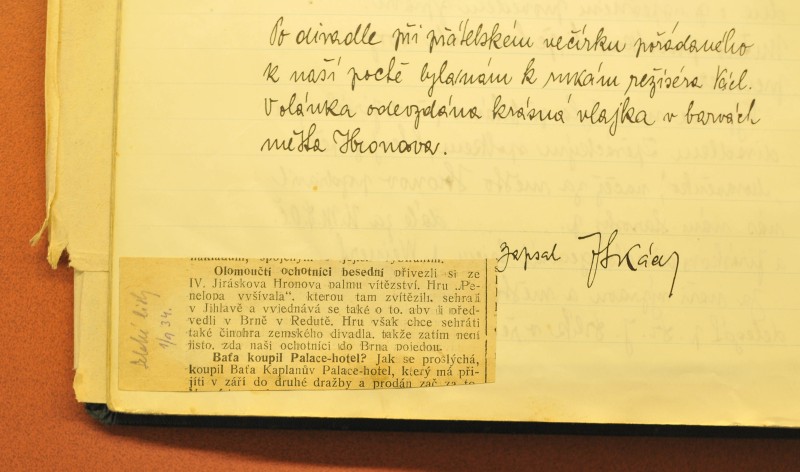 Po divadle při přátelském večírku pořádaného
k naší poctě byla nám k rukám režiséra Václ.
Volánka odevzdána krásná vlajka v barvách
města Hronova.
zapsal
Olomoučtí ochotníci besední přivezli si ze
IV. Jiráskova Hronova palmu vítězství. Hru „Pe-
nelopa vyšívala", kterou tam zvítězili, sehrají
v Jihlavě a vyjednává se také o to, aby ji před-
vedli v Brně v Redutě. Hru však chce sehráti
také činohra zemského divadla, takže zatím není
jisto, zda naši ochotníci do Brna pojedou.
Baťa koupil Palace-hotel? Jak se proslýchá,
koupil Baťa Kaplanův Palace-hotel, který má při-
jíti v září do druhé dražby a prodán zač za to